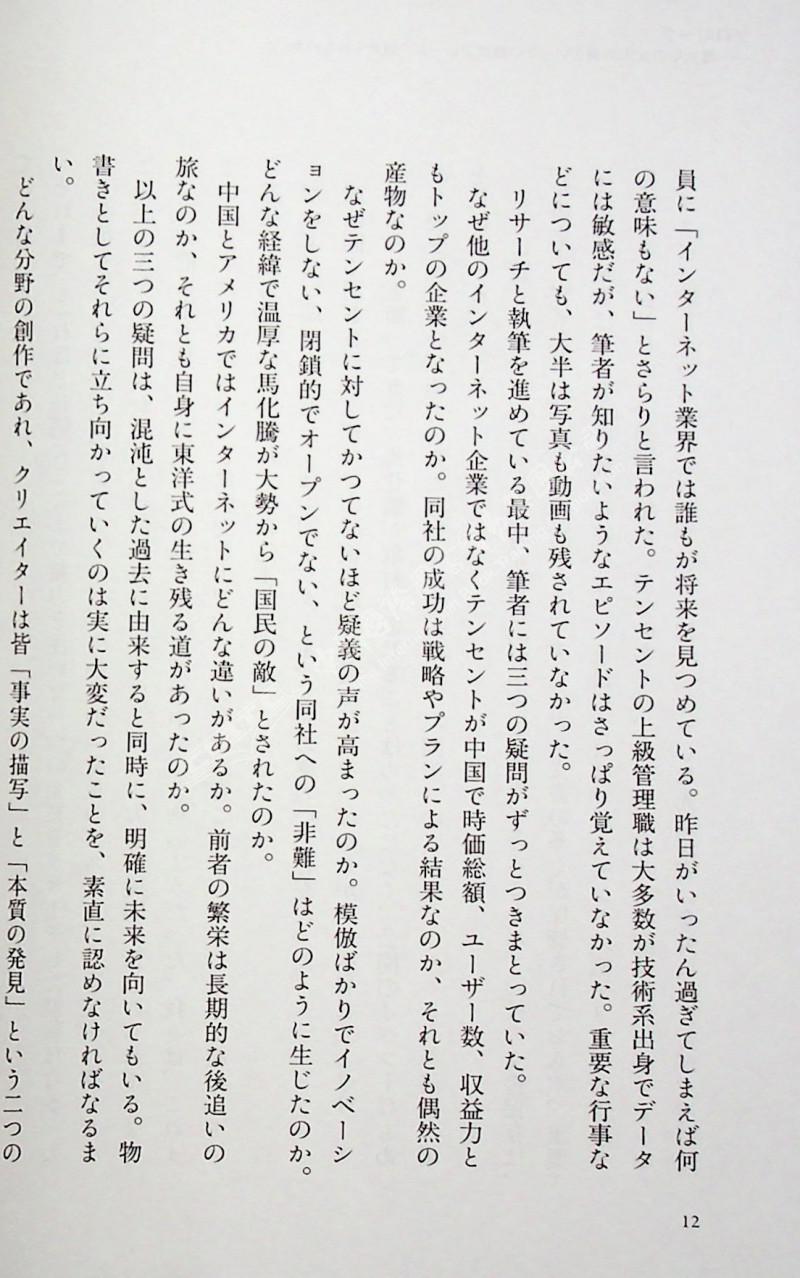 員に「インターネット業界では誰もが将来を見つめている。昨日がいったん過ぎてしまえば何
の意味もない」とさらりと言われた。テンセントの上級管理職は大多数が技術系出身でデータ
には敏感だが、筆者が知りたいようなエピソードはさっぱり覚えていなかった。重要な行事な
どについても、大半は写真も動画も残されていなかった。
リサーチと執筆を進めている最中、筆者には三つの疑問がずっとつきまとっていた。
なぜ他のインターネット企業ではなくテンセントが中国で時価総額、ユーザー数、収益力と
もトップの企業となったのか。同社の成功は戦略やプランによる結果なのか、それとも偶然の
産物なのか。
なぜテンセントに対してかつてないほど疑義の声が高まったのか。模倣ばかりでイノベーシ
ョンをしない、閉鎖的でオープンでない、という同社への「非難」はどのように生じたのか。
どんな経緯で温厚な馬化騰が大勢から「国民の敵」とされたのか。
中国とアメリカではインターネットにどんな違いがあるか。前者の繁栄は長期的な後追いの
旅なのか、それとも自身に東洋式の生き残る道があったのか。
以上の三つの疑問は、混沌とした過去に由来すると同時に、明確に未来を向いてもいる。物
書きとしてそれらに立ち向かっていくのは実に大変だったことを、素直に認めなければなるま
い。
どんな分野の創作であれ、クリエイターは皆「事実の描写」と「本質の発見」という二つの
12